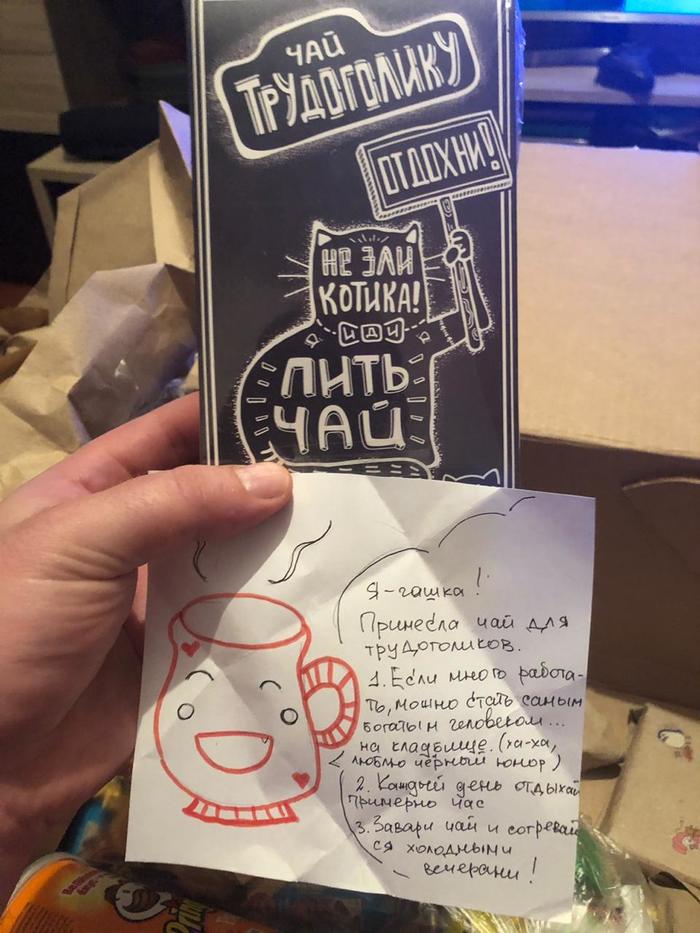 ЧАЙ
ТРУДОГОЛИКУ
ОТДОХНИ!
НЕ ЗЛИ
КОТИКА!
ИДИ
ПИТЬ
ЧАЙ
Я-чашка!
Принесла чай для
трудоголиков.
1. Если много работа-
ть, можно стать самым
богатым человеком...
на кладбище. (ха-ха,
люблю чёрный юмор)
2. Каждый день отдыхай
примерно час
3. Завари чай и согревай
ся холодными
вечерами!